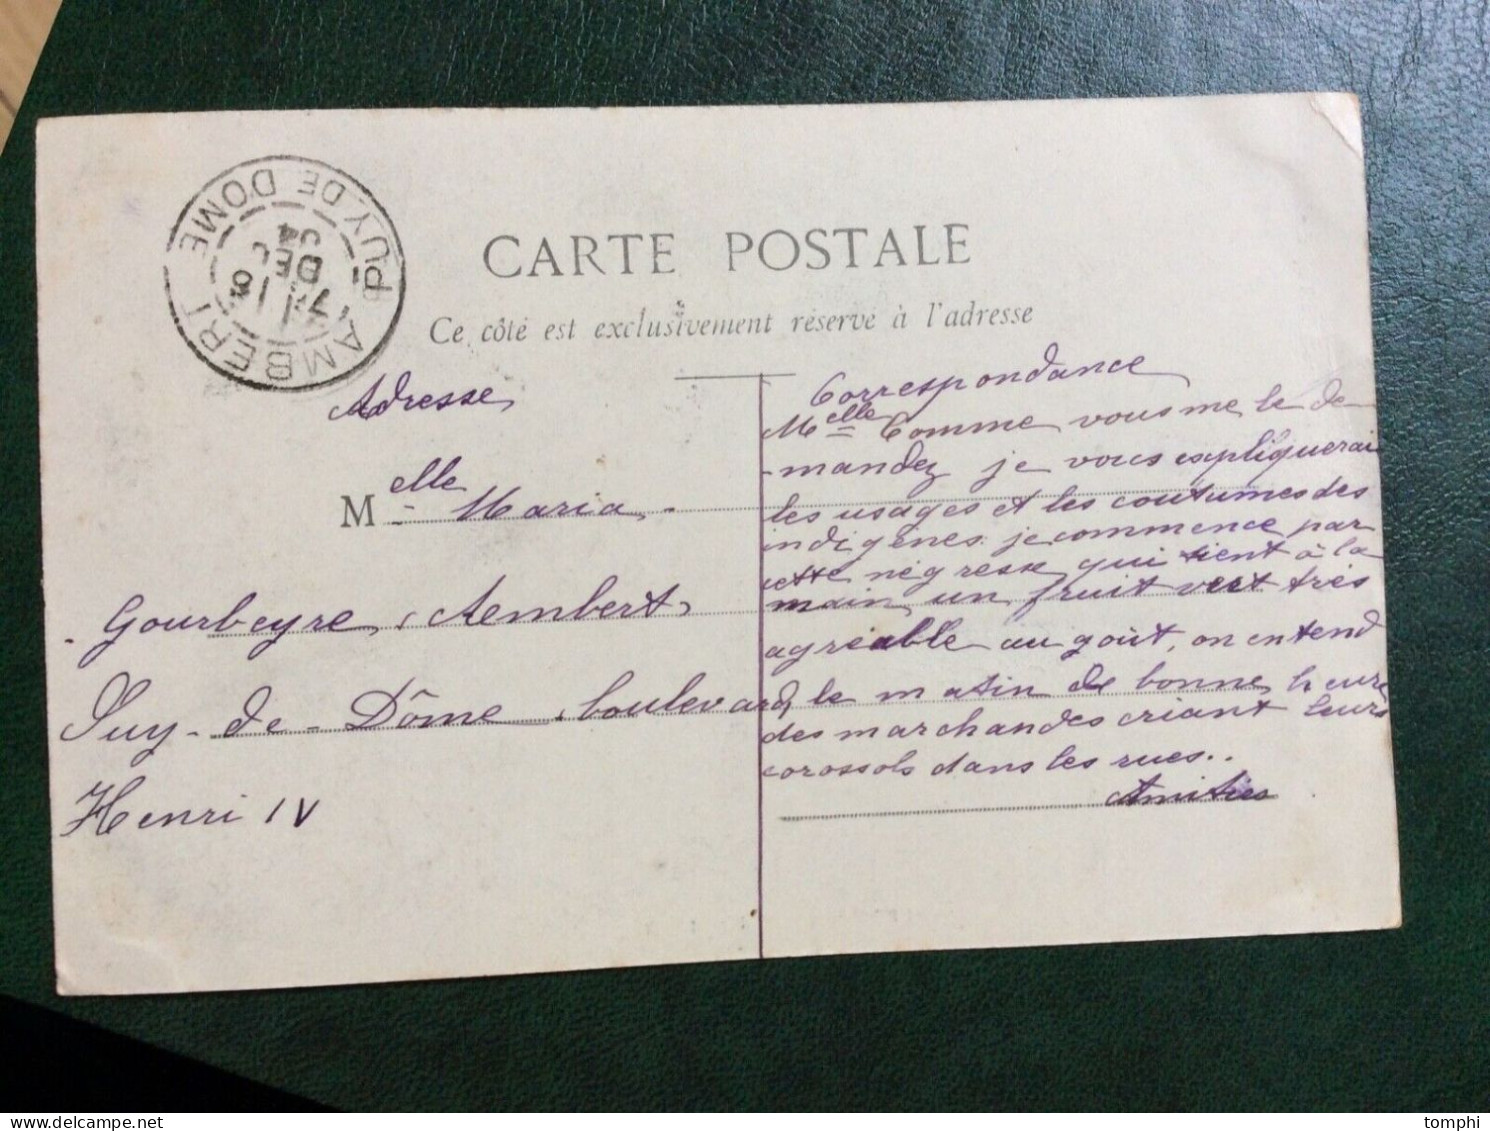 CARTE POSTALE
Ce côté est exclusivement réservé à l'adresse
AMBERT
PUY DE DOME
DEC
04
Adresse
Melle Maria
Gourbeyre, Aembert
Puy-de-Dôme, boulevard
Henri IV
Correspondance
Melle Comme vous me le de
-mandez je vous expliquerai
les usages et les coutumes des
indigènes. je commence par
cette négresse qui tient à la
main un fruit vert très
agréable au goût, on entend
le matin de bonne heure
des marchandes criant leurs
corossols dans les rues..
Amitiés
tomphi